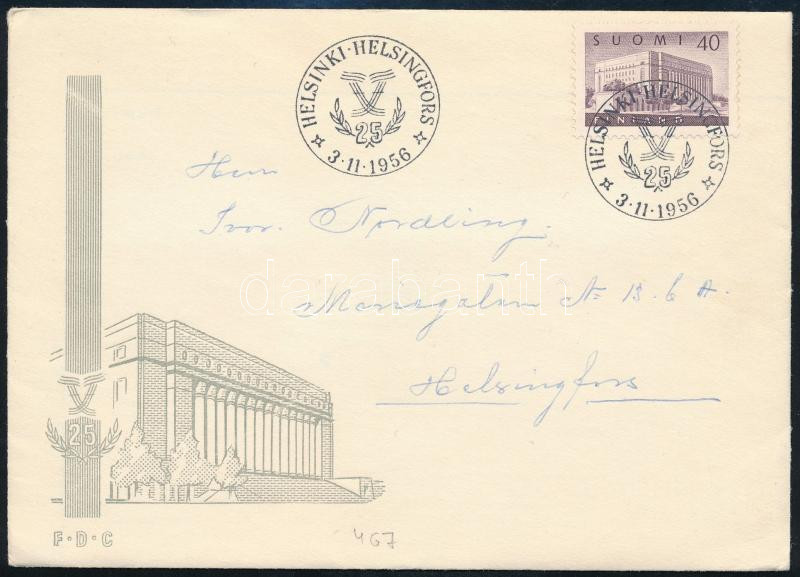 SUOMI 40
FINLAND
HELSINKI · HELSINGFORS
25
3·11·1956
HELSINKI · HELSINGFORS
25
3·11·1956
Herrn
Ivor. Nordling.
Mariegatan No 13. b A.
Helsingfors
darabanth
25
F·D·C
467